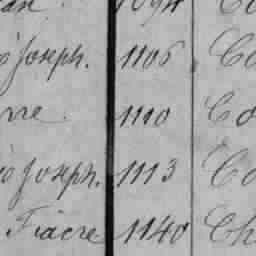 1094
Joseph. 1106 Co
rre 1110 Co
Joseph. 1113 Co
Fiacre 1140 Ch